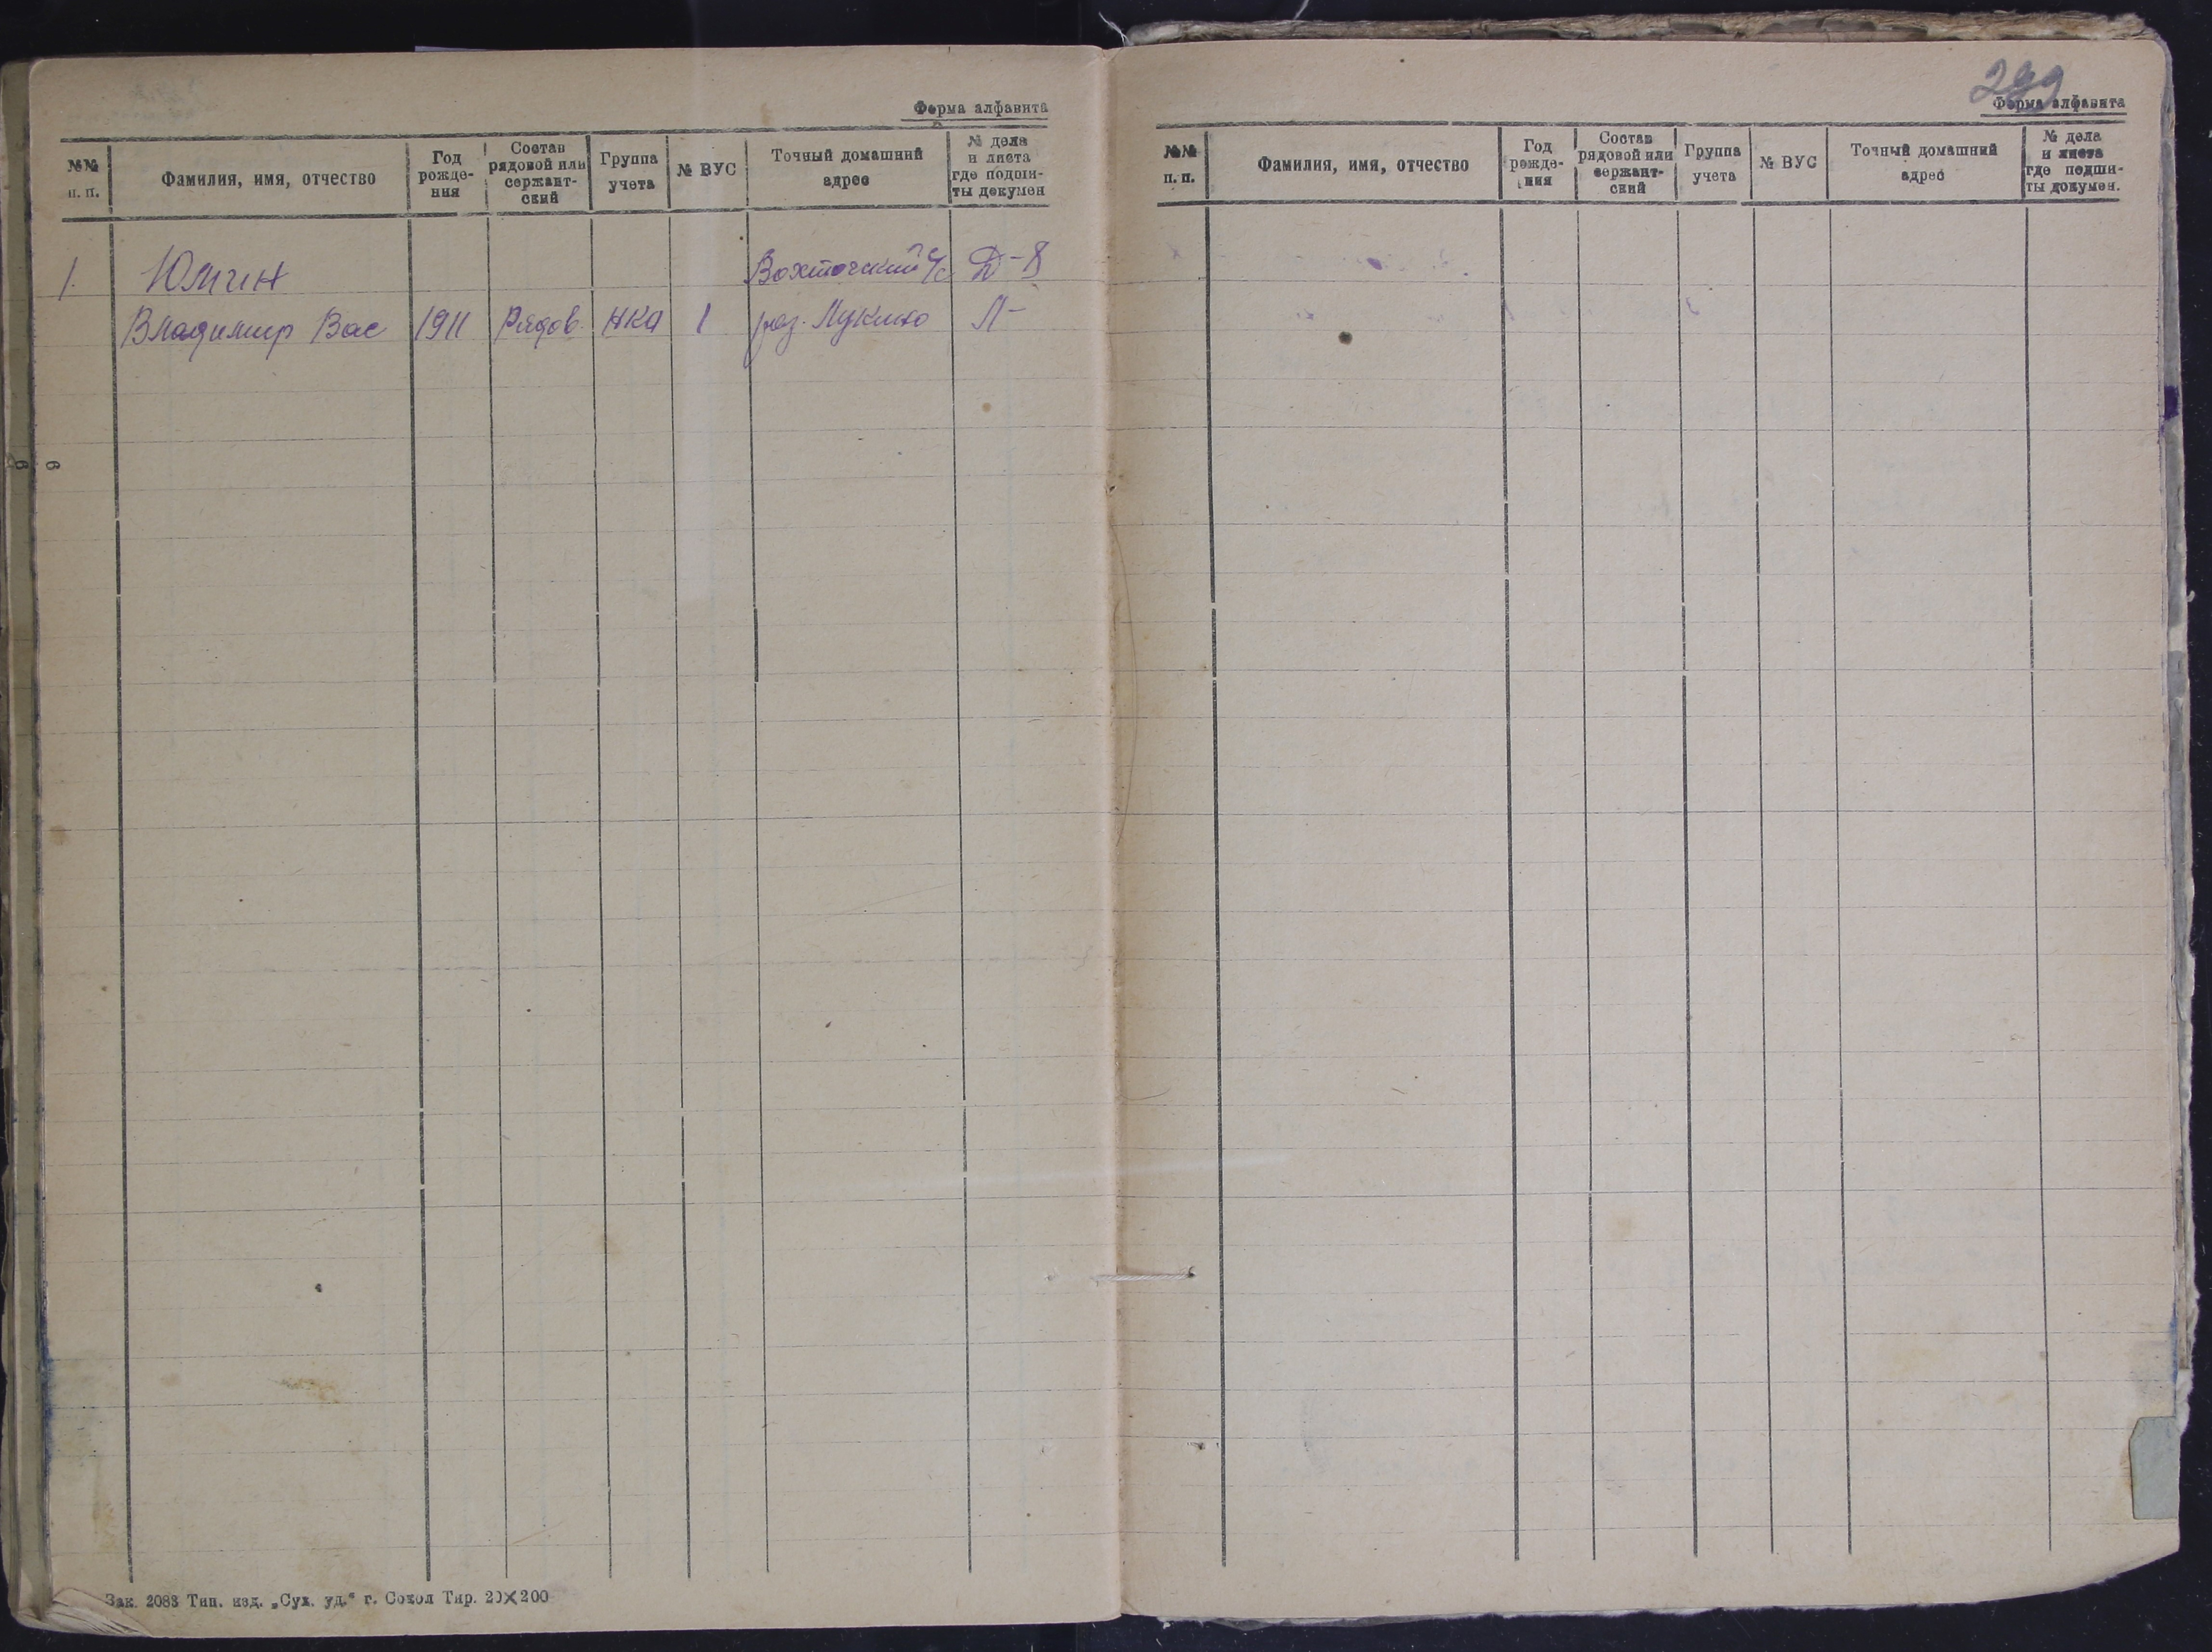 Форма алфавита
№№ п. п.
Фамилия, имя, отчество
Год рожде-ния
Состав рядовой или сержант-ский
Группа учета
№ ВУС
Точный домашний адрес
№ дела и листа где подши-ты докумен
1. Юмин Вохточский с/с Д-8
Владимир Вас 1911 Рядов. НКА 1 раз. Лукино Л-
6 6
Зак. 2083 Тип. изд. „Сух. уд.“ г. Сокол Тир. 20×200
Форма алфавита
№№ п. п.
Фамилия, имя, отчество
Год рожде-ния
Состав рядовой или сержант-ский
Группа учета
№ ВУС
Точный домашний адрес
№ дела и листа где подши-ты докумен.